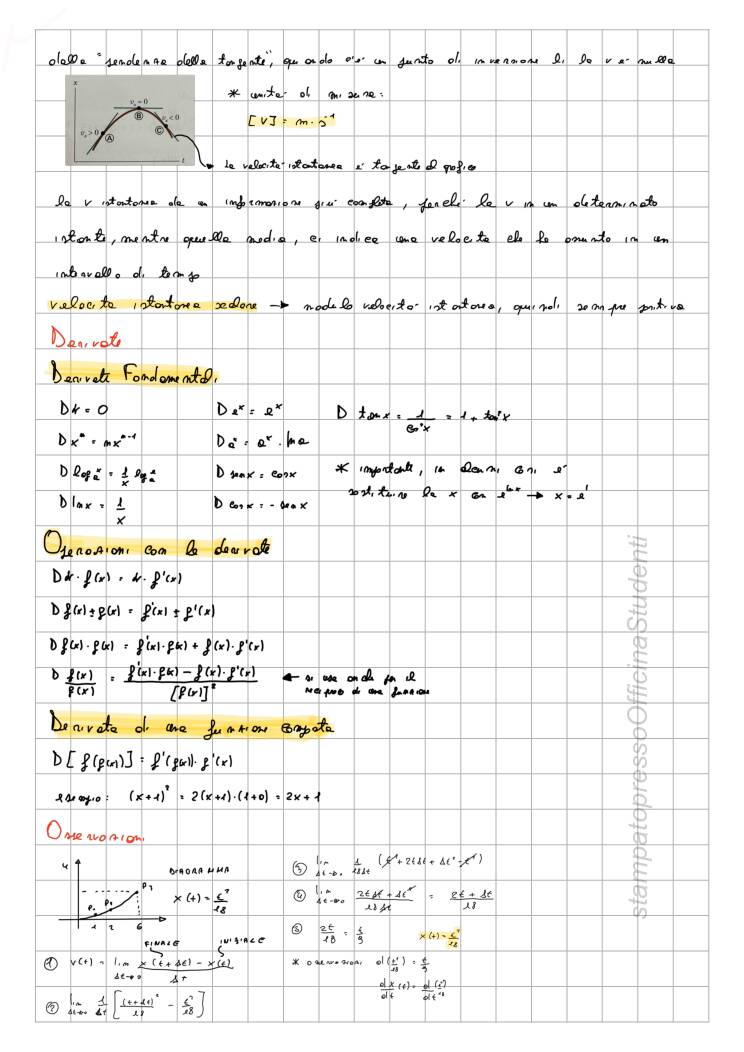 della "pendenza della tangente", quando c'è un punto di inversione lì la v è nulla
x
vₓ = 0
B
vₓ > 0
A
vₓ < 0
C
t
* unità di misura:
[V] = m · s⁻¹
la velocità istantanea è tangente al grafico
la v istantanea da un informazione più completa, perché la v in un determinato
istante, mentre quella media, ci indica una velocità che ha assunto in un
intervallo di tempo
velocità istantanea scalare → modulo velocità istantanea, quindi sempre positiva
Derivate
Derivate Fondamentali
D k = 0
D eˣ = eˣ
D tan x = 1/cos²x = 1 + tan²x
D xⁿ = nxⁿ⁻¹
D aˣ = aˣ · ln a
D logₐx = 1/x logₐe
D sen x = cos x
* importante, in alcuni casi è
sostituire la x con e^lnx → x = e
D ln x = 1/x
D cos x = - sen x
Operazioni con le derivate
D k · f(x) = k · f'(x)
D f(x) ± g(x) = f'(x) ± g'(x)
D f(x) · g(x) = f'(x) · g(x) + f(x) · g'(x)
D f(x)/g(x) = f'(x) · g(x) - f(x) · g'(x) / [g(x)]²
← si usa anche per il
reciproco di una funzione
Derivata di una funzione composta
D[f(g(x))] = f'(g(x)) · g'(x)
esempio: (x+1)² = 2(x+1) · (1+0) = 2x + 1
Osservazioni
DIAGRAMMA
x(t) = t²/18
1 2 6
FINALE INIZIALE
① v(t) = lim Δt→0 x(t + Δt) - x(t) / Δt
② lim Δt→0 1/Δt [(t+Δt)²/18 - t²/18]
③ lim Δt→0 1/18Δt (t² + 2tΔt + Δt² - t²)
④ lim Δt→0 2tΔt + Δt² / 18Δt = 2t + Δt / 18
⑤ 2t/18 = t/9
x(t) = t²/18
* osservazioni d(t²/18) = t/9
dx/dt (t) = d/dt (t²/18)
stampatopressoOfficinaStudenti